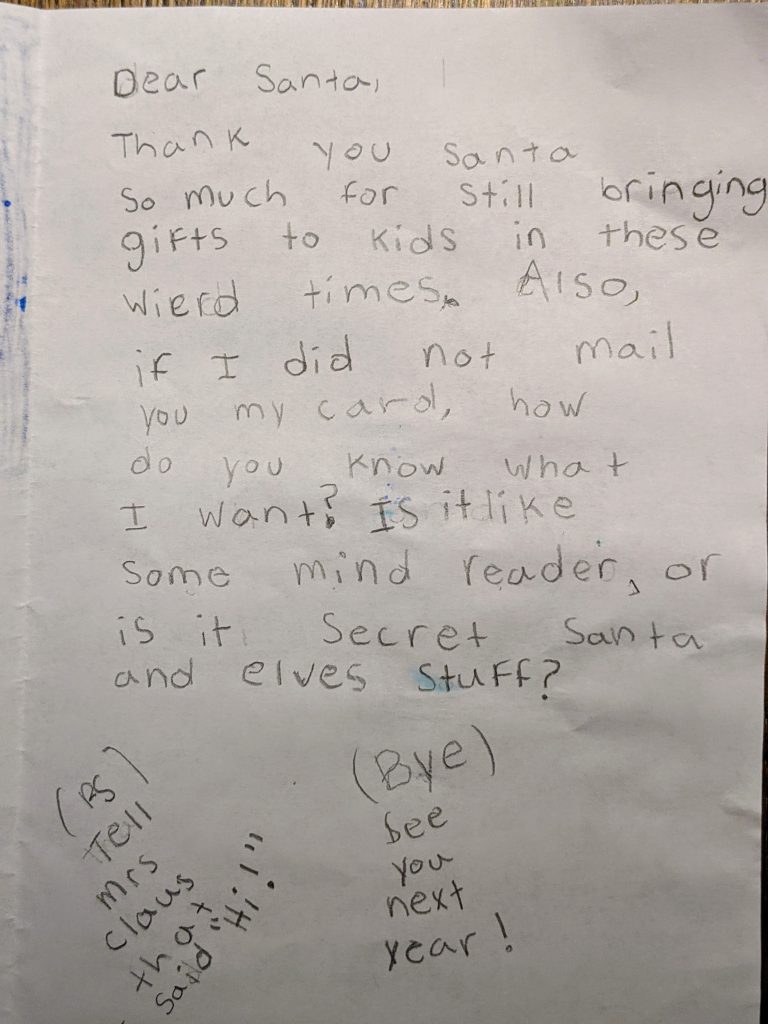 Dear Santa,
Thank you Santa
so much for still bringing
gifts to kids in these
wierd times. Also,
if I did not mail
you my card, how
do you know what
I want? Is it like
some mind reader, or
is it Secret Santa
and elves stuff?
(PS)
Tell
Mrs
Claus
that
said "Hi!"
(Bye)
See
you
next
year!